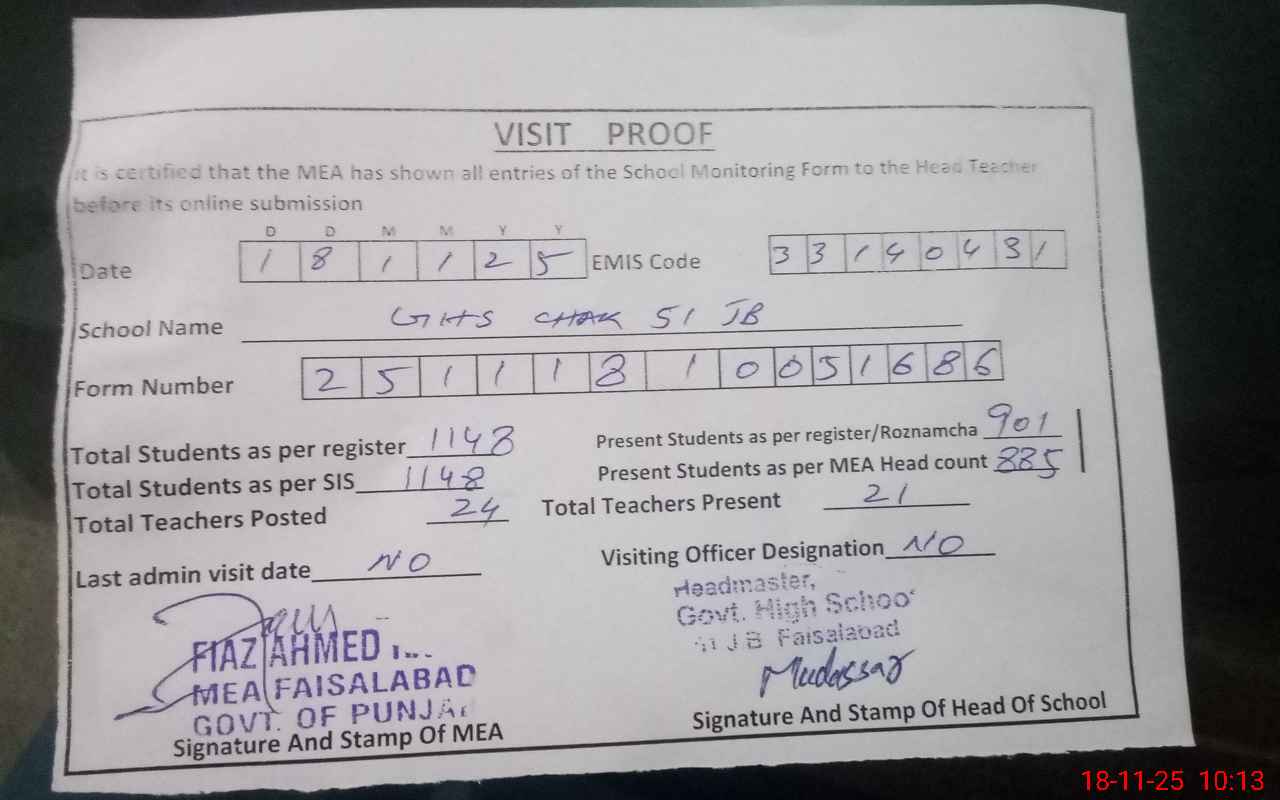 VISIT PROOF
It is certified that the MEA has shown all entries of the School Monitoring Form to the Head Teacher
before its online submission
D D M M Y Y
Date 1 8 1 1 2 5 EMIS Code 3 3 1 4 0 4 3 1
School Name GHS CHAK 51 JB
Form Number 2 5 1 1 1 8 1 0 0 5 1 6 8 6
Total Students as per register 1148 Present Students as per register/Roznamcha 901
Total Students as per SIS 1148 Present Students as per MEA Head count 885
Total Teachers Posted 24 Total Teachers Present 21
Last admin visit date NO Visiting Officer Designation NO
Headmaster,
Govt. High School
51 J B Faisalabad
Mudassar
FIAZ AHMED
MEA FAISALABAD
GOVT. OF PUNJA
Signature And Stamp Of MEA Signature And Stamp Of Head Of School
18-11-25 10:13